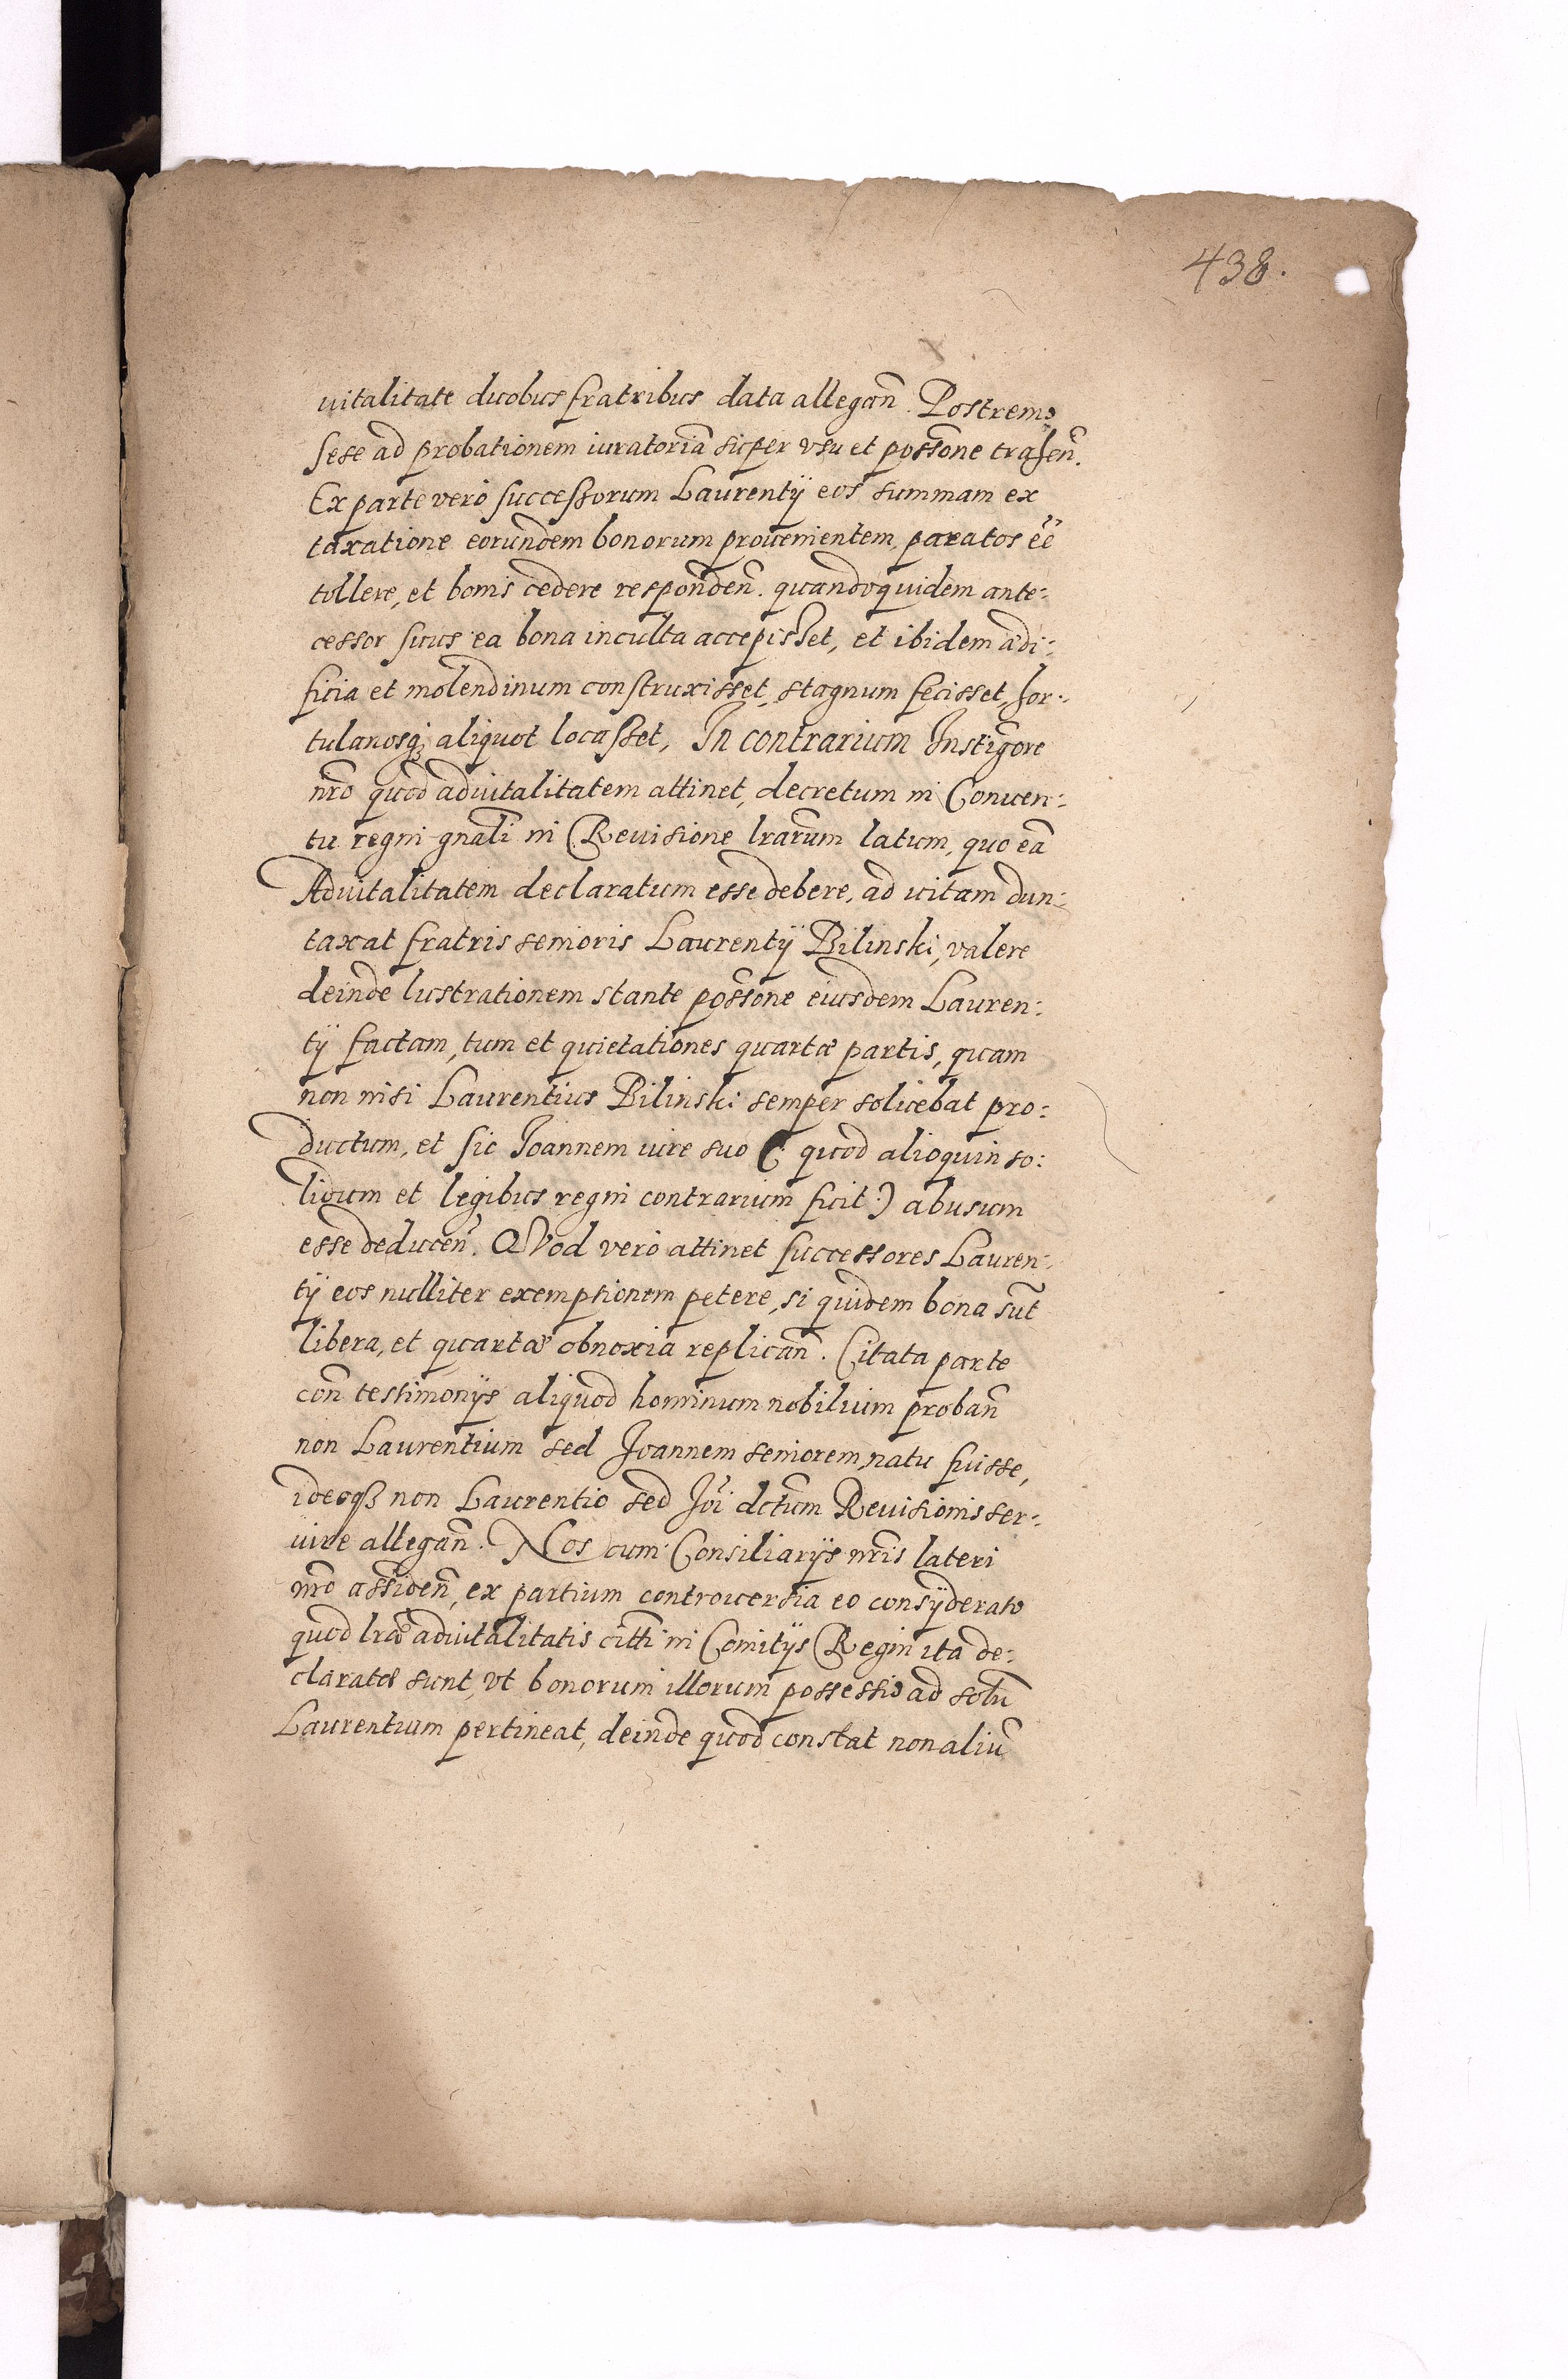 438.
vitalitate duobus fratribus data allegan̄. Postremo
sese ad probationem iuratoriā super vsu et possōne trahen̄.
Ex parte vero successorum Laurentÿ eos summam ex
taxatione eorundem bonorum prouenientem, paratos eē
tollere, et bonis cedere responden̄. quandoquidem ante:
cessor suus ea bona inculta accepisset, et ibidem ædi:
ficia et molendinum construxisset, stagnum fecisset, hor:
tulanosq; aliquot locasset, In contrarium Instigōre
nr̄o quod aduitalitatem attinet, decretum in Conuen:
tu regni gnāli in Reuisione lrarūm latum, quo eā
Aduitalitatem declaratum esse debere, ad uitam dun:
taxat fratris senioris Laurentÿ Bilinski, valere
deinde lustrationem stante possōne eiusdem Lauren:
tÿ factam, tum et quietationes quartæ partis, quam
non nisi Laurentius Bilinski semper soluebat pro:
ductum, et sic Joannem iure suo (: quod alioquin so:
lidum et legibus regni contrarium ficit :) abusum
esse deducen̄. QVod vero attinet successores Lauren:
tÿ eos nulliter exemptionem petere, si quidem bona sūt
libera, et quartæ obnoxia replican̄. Citata parte
con̄ testimonÿs aliquod hominum nobilium proban̄
non Laurentium sed Joannem seniorem natu fuisse,
ideoqß non Laurentio sed Joī dctūm Reuisionis ser:
uire allegan̄. Nos cum Consiliarÿs nrīs lateri
nrō assiden̄, ex partium controuersia eo consÿderato
quod lræ aduitalitatis cittī in Comitÿs Regni ita de:
claratæ sunt, vt bonorum illorum possessio ad solū
Laurentium pertineat, deinde quod constat non aliū